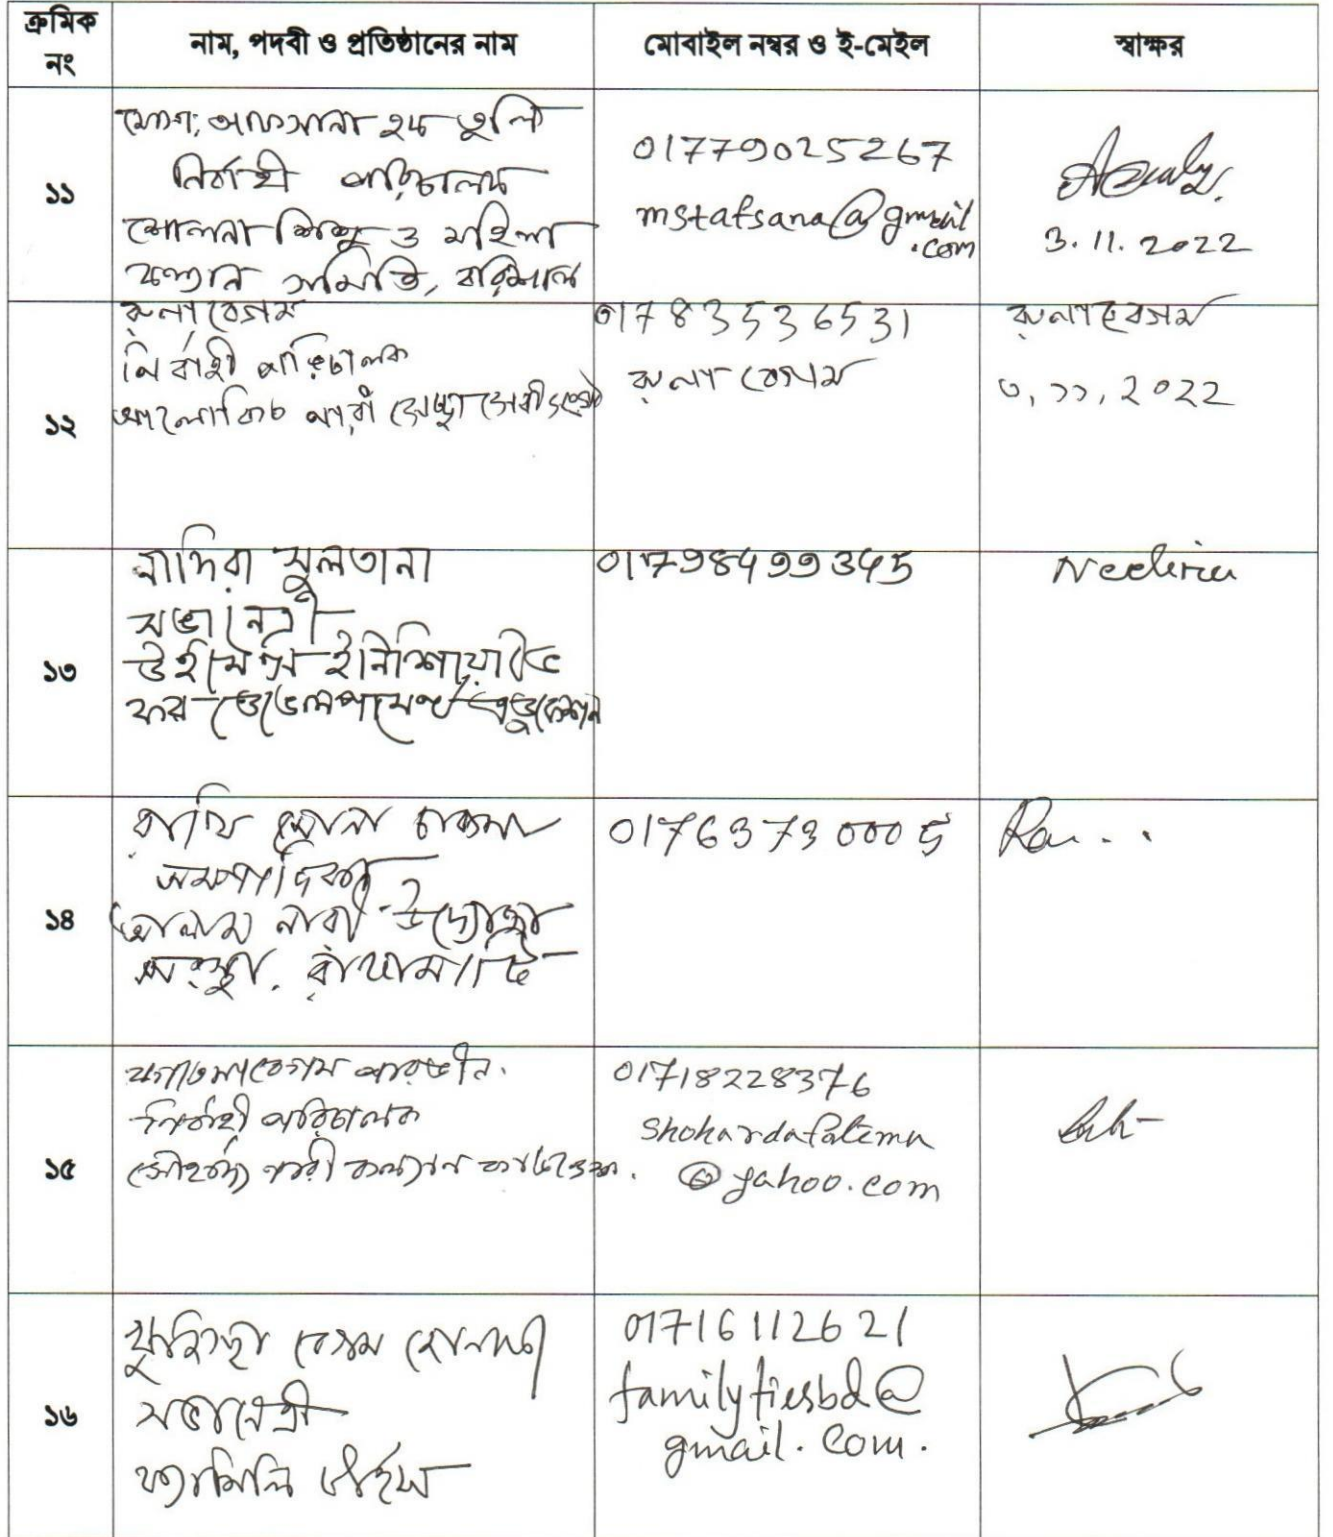 ক্রমিক নং
নাম, পদবী ও প্রতিষ্ঠানের নাম
মোবাইল নম্বর ও ই-মেইল
স্বাক্ষর
১১
মোসা: আফসানা হক তুলি
নির্বাহী পরিচালক
শোলনা শিশু ও মহিলা
কল্যান সমিতি, বরিশাল
01779025267
mstafsana@gmail
.com
3.11.2022
১২
রুনা বেগম
নির্বাহী পরিচালক
আলোকিত নারী
01783536531
রুনা বেগম
রুনা বেগম
৩,১১,2022
১৩
নাদিরা সুলতানা
সভানেত্রী
উইমেন্স ইনিশিয়েটিভ
ফর ডেভেলপমেন্ট এডুকেশন
01798499345
১৪
রাখি চাকমা
সম্পাদিকা
নারী উদ্যোক্তা
সংস্থা. রাঙামাটি
01763730005
১৫
ফাতেমা বেগম পারভীন.
নির্বাহী পরিচালক
সৌহার্দ্য নারী কল্যান ফাউন্ডেশন.
01718228376
Shohardafatema
@yahoo.com
১৬
বেগম
সভানেত্রী
ফ্যামিলি টাইস
01716112621
familytiesbd@
gmail.com.